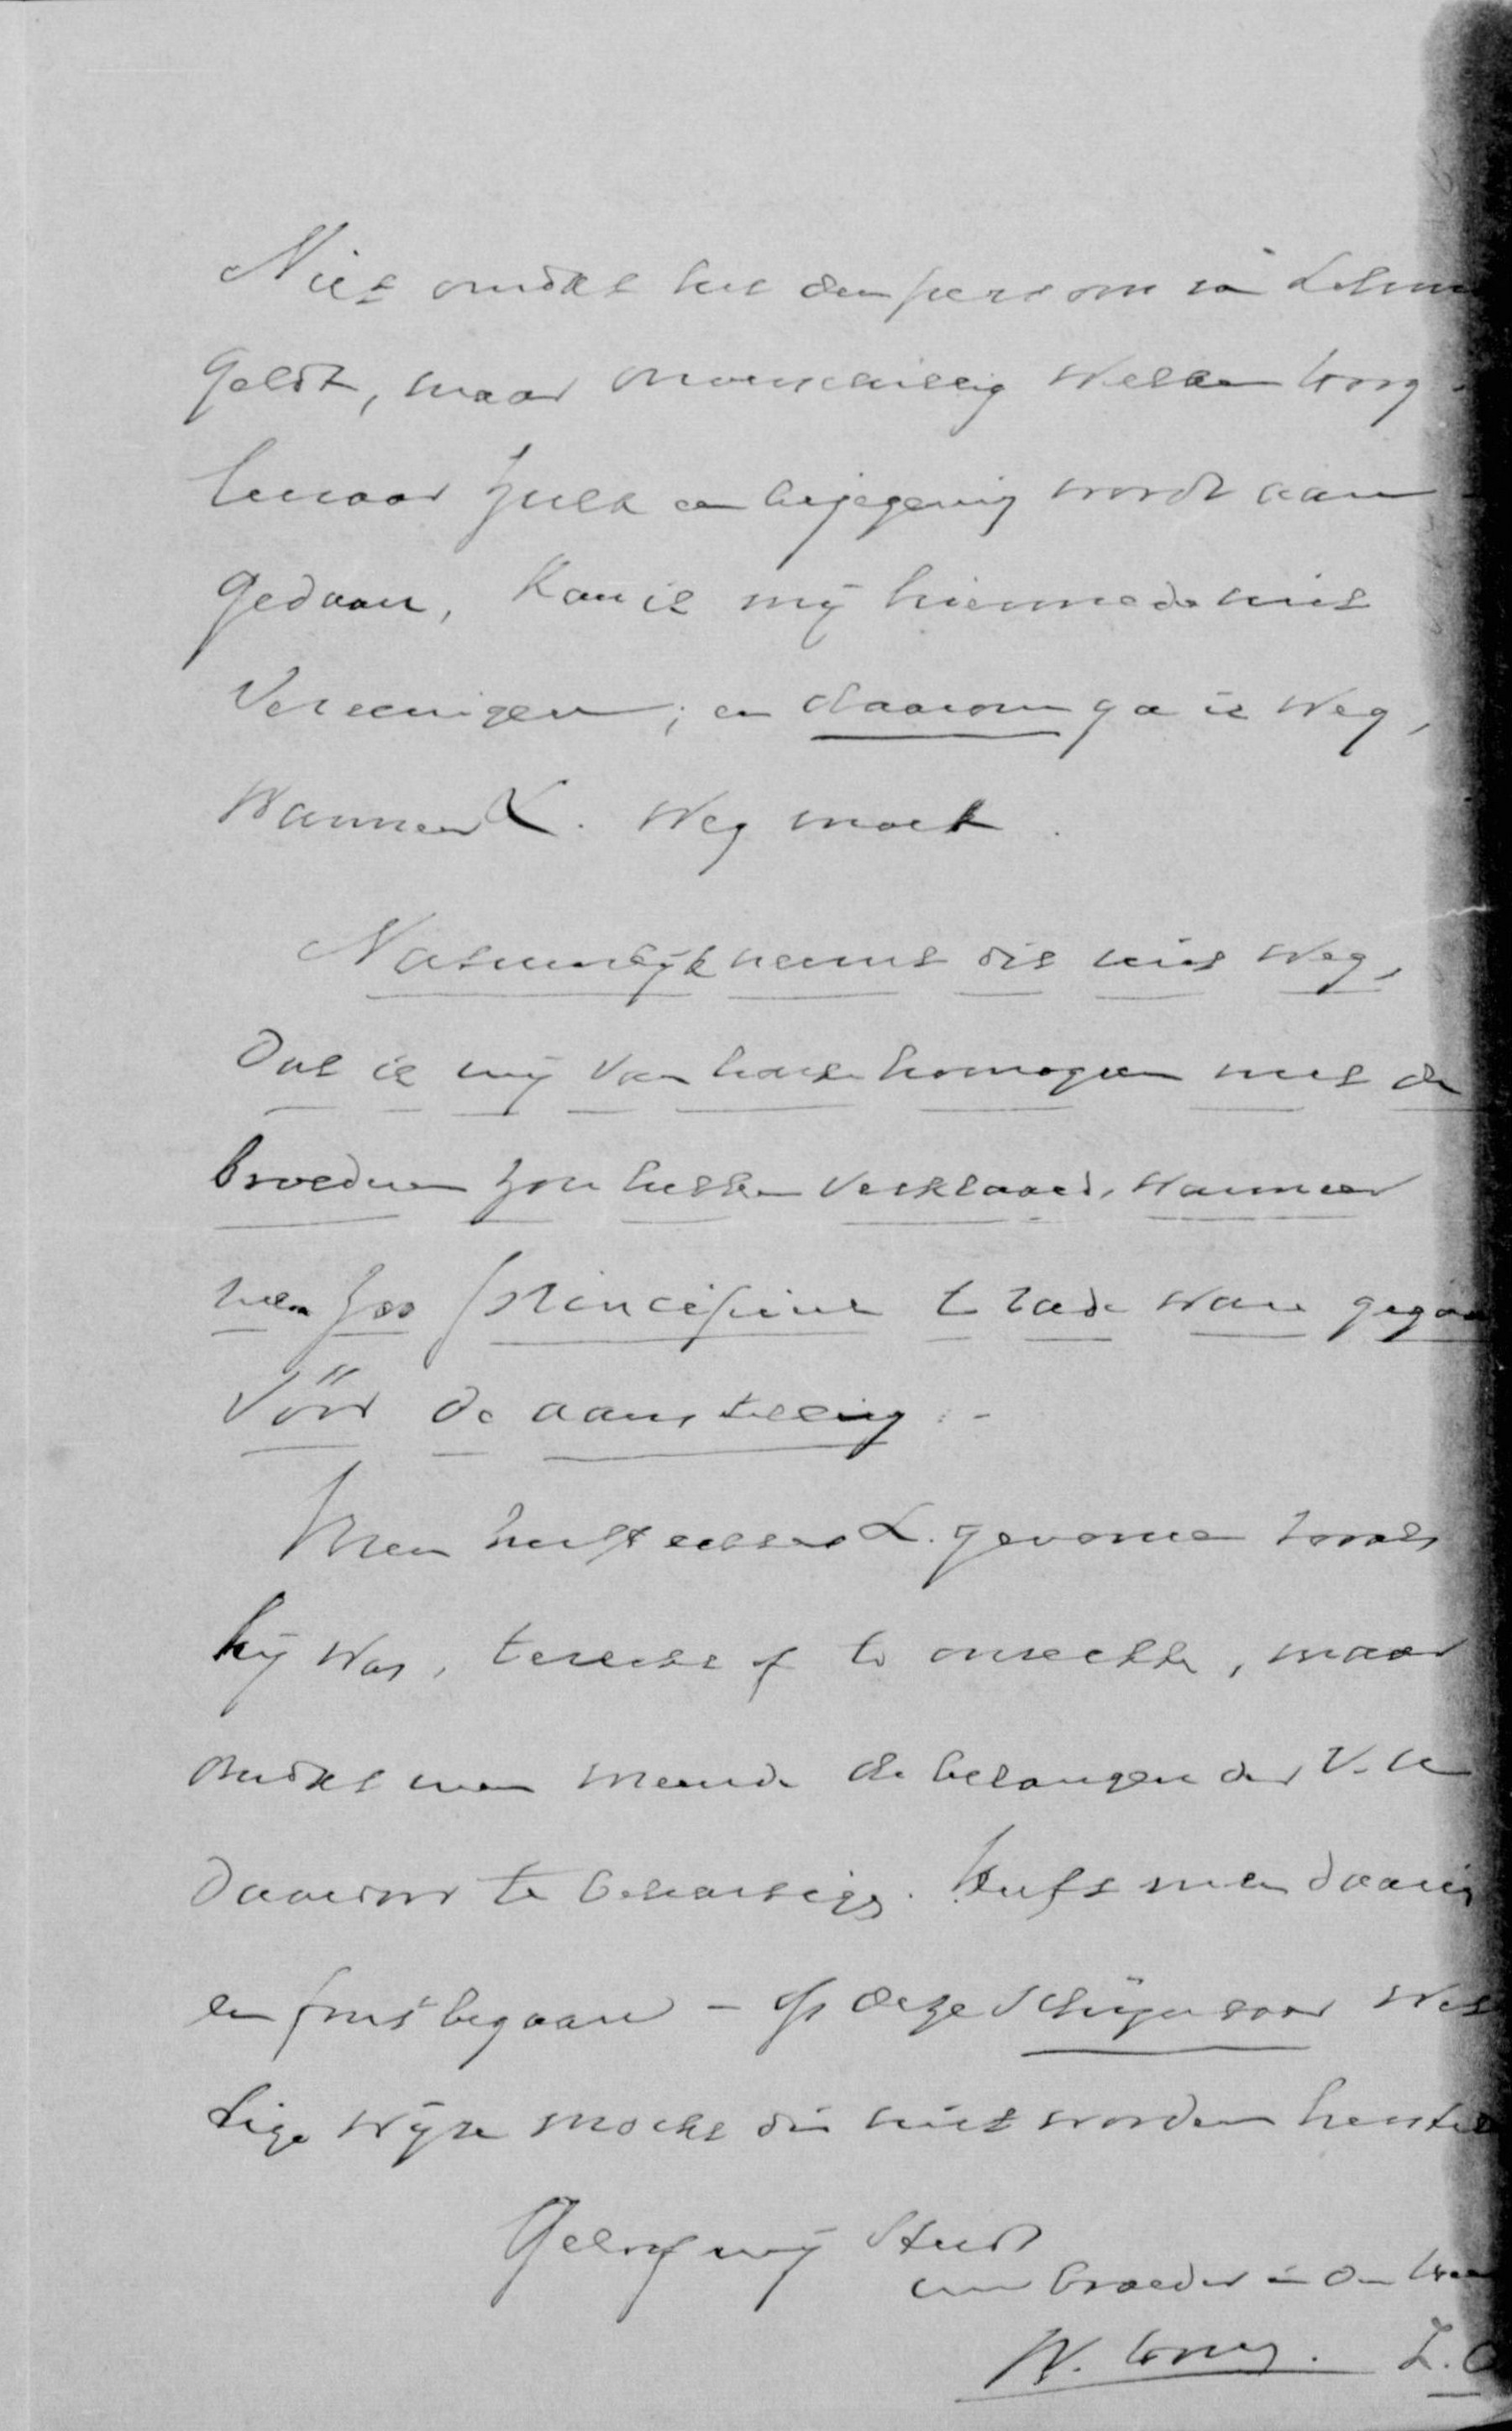 Niet omdat het den persoon van Lohman
geldt, maar onverschillig welken hoog-
leeraar zulk een bejegening wordt aan-
gedaan, kan ik mij hiermede niet
vereenigen; en daarom ga ik weg,
wanneer L. weg moet.
Natuurlijk neemt dit niet weg,
dat ik mij van harte homogeen met de
broederen zou hebben verklaard, wanneer
men zoo principieel te rade ware gegaan
vóór de aanstelling.-
Men heeft echter L. genomen zooals
hij was, terecht of te onrechte, maar
omdat men meende de belangen der V.U.
daardoor te behartigen. Heeft men daarin
een fout begaan - op deze
wijze mocht die niet worden hersteld
Geloof mij steeds
uw broeder in den Heer